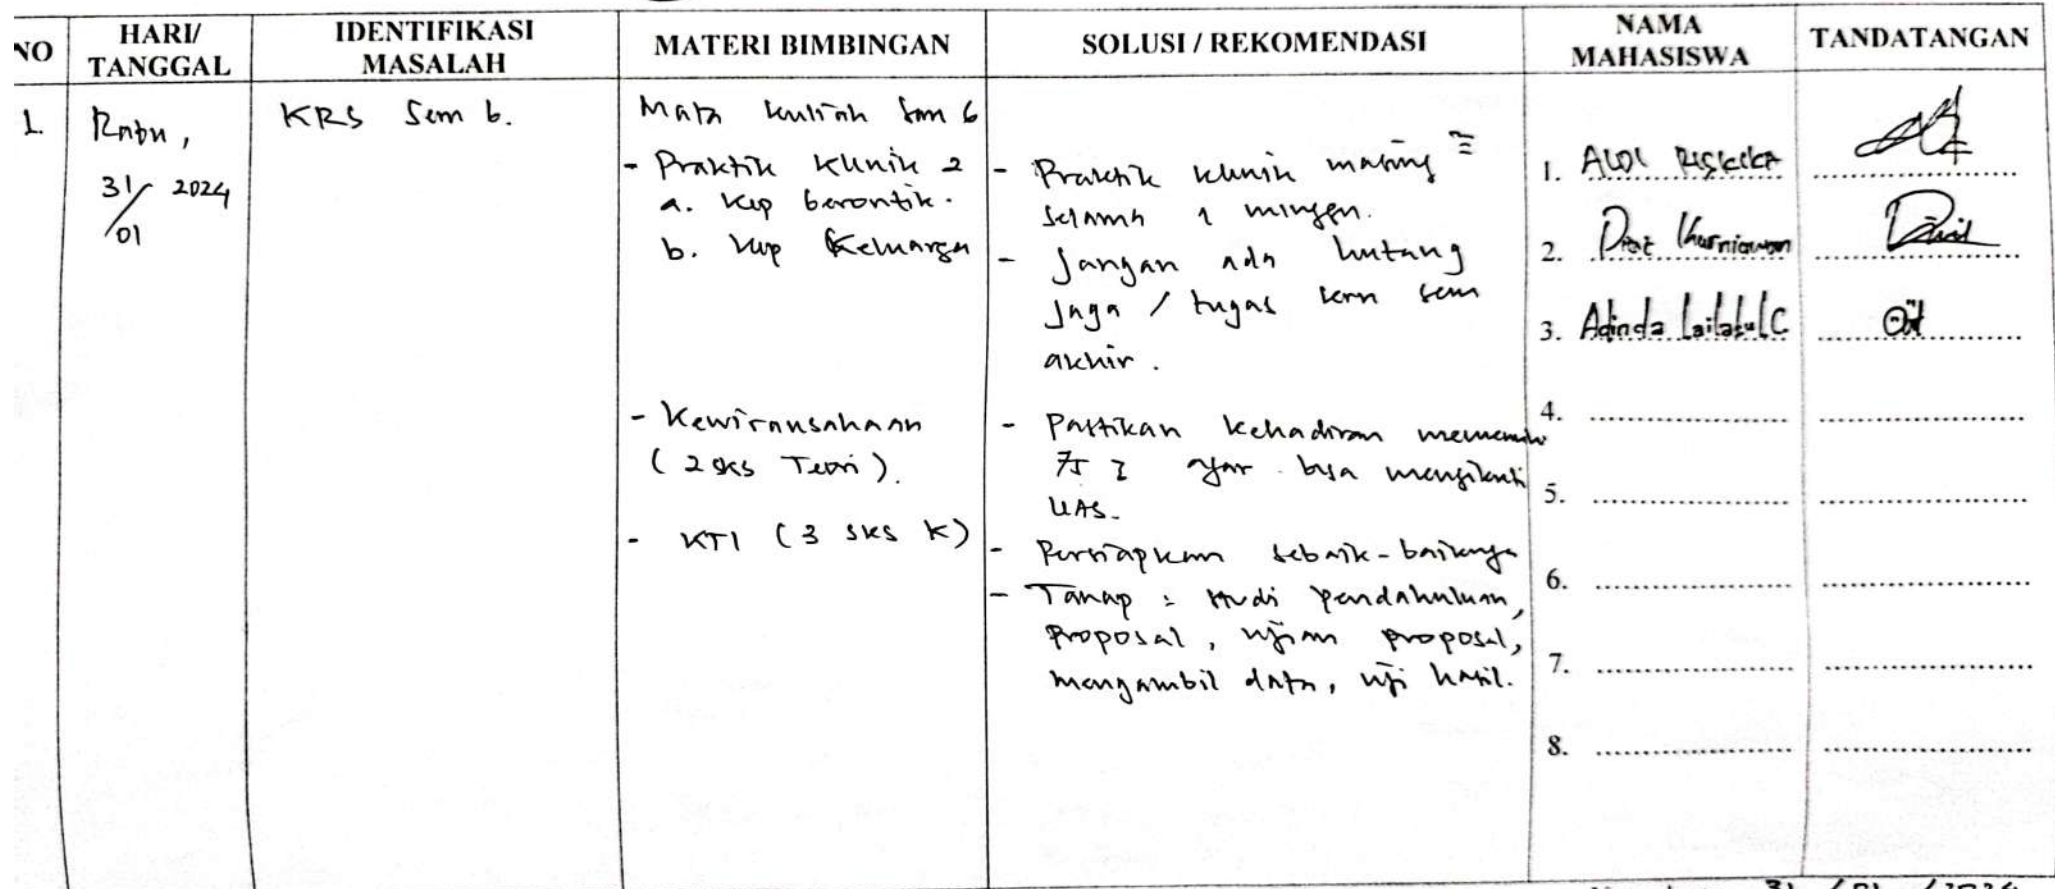 NO
HARI/
TANGGAL
IDENTIFIKASI
MASALAH
MATERI BIMBINGAN
SOLUSI / REKOMENDASI
NAMA
MAHASISWA
TANDATANGAN
1.
Rabu,
31/01 2024
KRS Sem 6.
Mata kuliah Sem 6
- Praktik Klinik 2
a. Kep Gerontik.
b. Kep Keluarga
- Kewirausahaan
(2 sks Teori).
- KTI (3 sks K)
- Praktik klinik masing =
selama 1 minggu.
- Jangan ada hutang
jaga / tugas krn sem
akhir.
- Pastikan kehadiran memenuhi
75 % agar bisa mengikuti
UAS.
- Persiapkan sebaik-baiknya
- Tahap : studi pendahuluan,
proposal, ujian proposal,
mengambil data, uji hasil.
1. ALDI
2. Kurniawan
3. Adinda Lailatul C
4.
5.
6.
7.
8.
31 / 01 / 2024